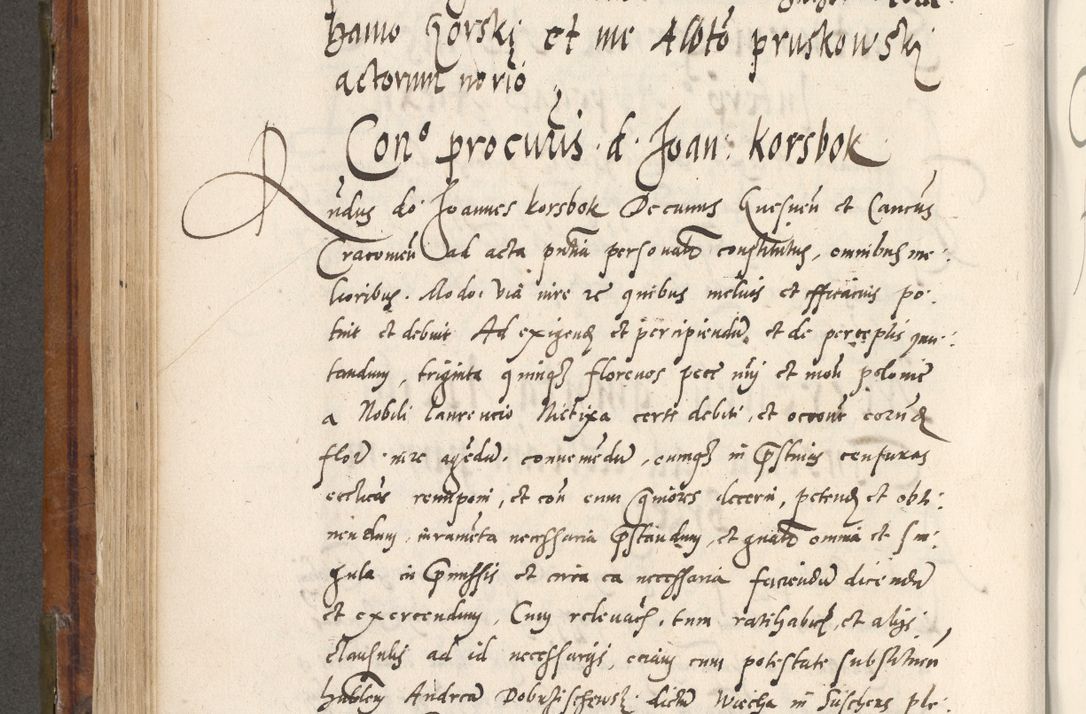 hamo Gorski et me Albto pruskowski
actorum norio
Cono procuris d. Joan: Korsbok
Rndus do. Joannes Korsbok Decanus Gnesnen et Cancus
Cracovien ad acta pntia personalr constitutus, omnibus me:
lioribus. Modo. via iure re quibus melius et efficacius po:
tuit et debuit Ad exigend et percipiendum et de perceptis quie:
tandum, triginta quinqz florenos pece et polonie
a Nobili Laurencio certi debiti, et occone eorund
flor. in re agendum. conveniendum, eumqz in censuras
ecclicas reimponi, et con eum decerni, petend et obti:
nendum, iuramenta necessaria pstandum, et omnia et sin:
gula in pmissis et circa ea necessaria faciendum dicendum
et exercendum, Cum relevach. tum ratihabich, et alijs
clausulis ad id necessarijs, eciam cum potestate substituen
hnblem Andream dictum Wiecha in ple: